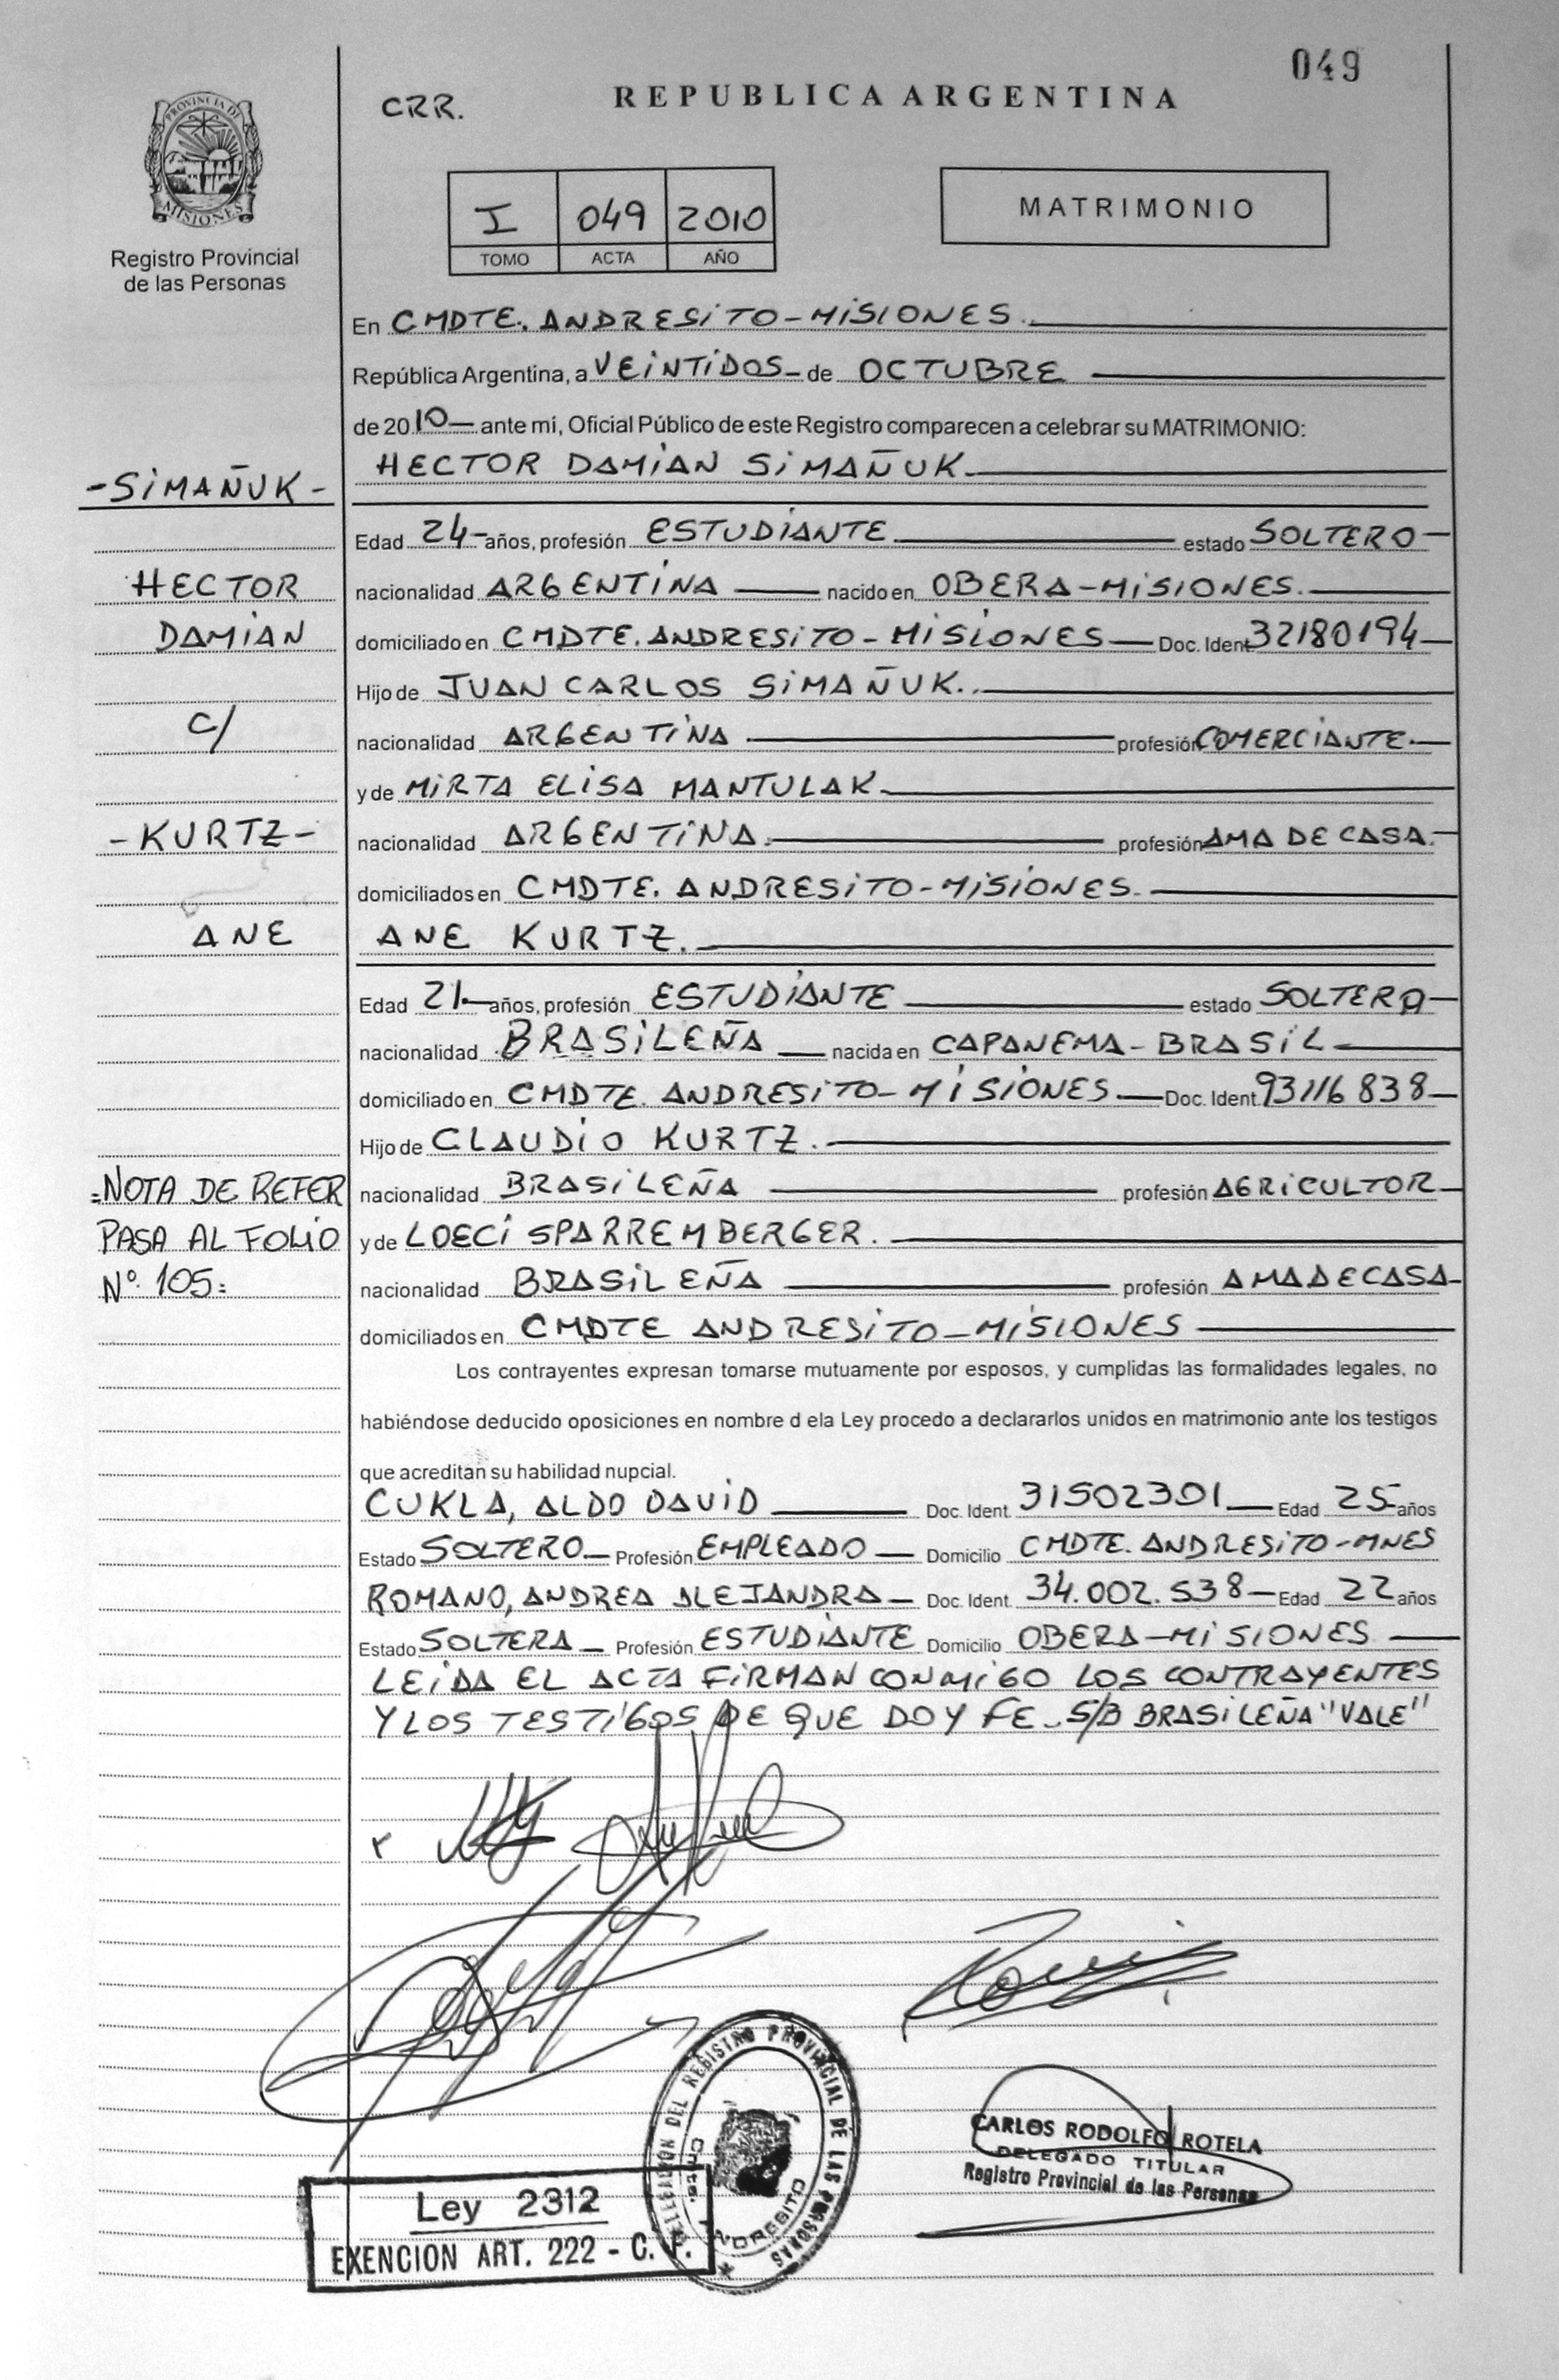 049
CRR.
REPUBLICA ARGENTINA
PROVINCIA DE
MISIONES
Registro Provincial
de las Personas
I 049 2010
TOMO ACTA AÑO
MATRIMONIO
En CMDTE. ANDRESITO-MISIONES.
República Argentina, a VEINTIDOS de OCTUBRE
de 2010 ante mí, Oficial Público de este Registro comparecen a celebrar su MATRIMONIO:
HECTOR DAMIAN SIMAÑUK.
-SIMAÑUK-
Edad 24 años, profesión ESTUDIANTE estado SOLTERO
HECTOR
nacionalidad ARGENTINA nacido en OBERA-MISIONES.
DAMIAN
domiciliado en CMDTE. ANDRESITO-MISIONES Doc. Ident 32180194
Hijo de JUAN CARLOS SIMAÑUK.
C/
nacionalidad ARGENTINA profesión COMERCIANTE.
y de MIRTA ELISA MANTULAK
-KURTZ-
nacionalidad ARGENTINA. profesión AMA DE CASA.
domiciliados en CMDTE. ANDRESITO-MISIONES.
ANE
ANE KURTZ.
Edad 21 años, profesión ESTUDIANTE estado SOLTERA
nacionalidad BRASILEÑA nacida en CAPANEMA-BRASIL
domiciliado en CMDTE. ANDRESITO-MISIONES Doc. Ident. 93116838
Hijo de CLAUDIO KURTZ.
=NOTA DE REFER
nacionalidad BRASILEÑA profesión AGRICULTOR
PASA AL FOLIO
y de LOECI SPARREMBERGER.
Nº 105=
nacionalidad BRASILEÑA profesión AMA DE CASA
domiciliados en CMDTE ANDRESITO-MISIONES
Los contrayentes expresan tomarse mutuamente por esposos, y cumplidas las formalidades legales, no
habiéndose deducido oposiciones en nombre d ela Ley procedo a declararlos unidos en matrimonio ante los testigos
que acreditan su habilidad nupcial.
CUKLA, ALDO DAVID Doc. Ident. 31502301 Edad 25 años
Estado SOLTERO Profesión EMPLEADO Domicilio CMDTE. ANDRESITO-MNES
ROMANO, ANDREA ALEJANDRA Doc. Ident. 34.002.538 Edad 22 años
Estado SOLTERA Profesión ESTUDIANTE Domicilio OBERA-MISIONES
LEIDA EL ACTA FIRMAN CONMIGO LOS CONTRAYENTES
Y LOS TESTIGOS DE QUE DOY FE. S/B BRASILEÑA "VALE"
DEL REGISTRO PROVINCIAL DE LAS PERSONAS
Cmte. ANDRESITO
CARLOS RODOLFO ROTELA
DELEGADO TITULAR
Registro Provincial de las Personas
Ley 2312
EXENCION ART. 222 - C. F.